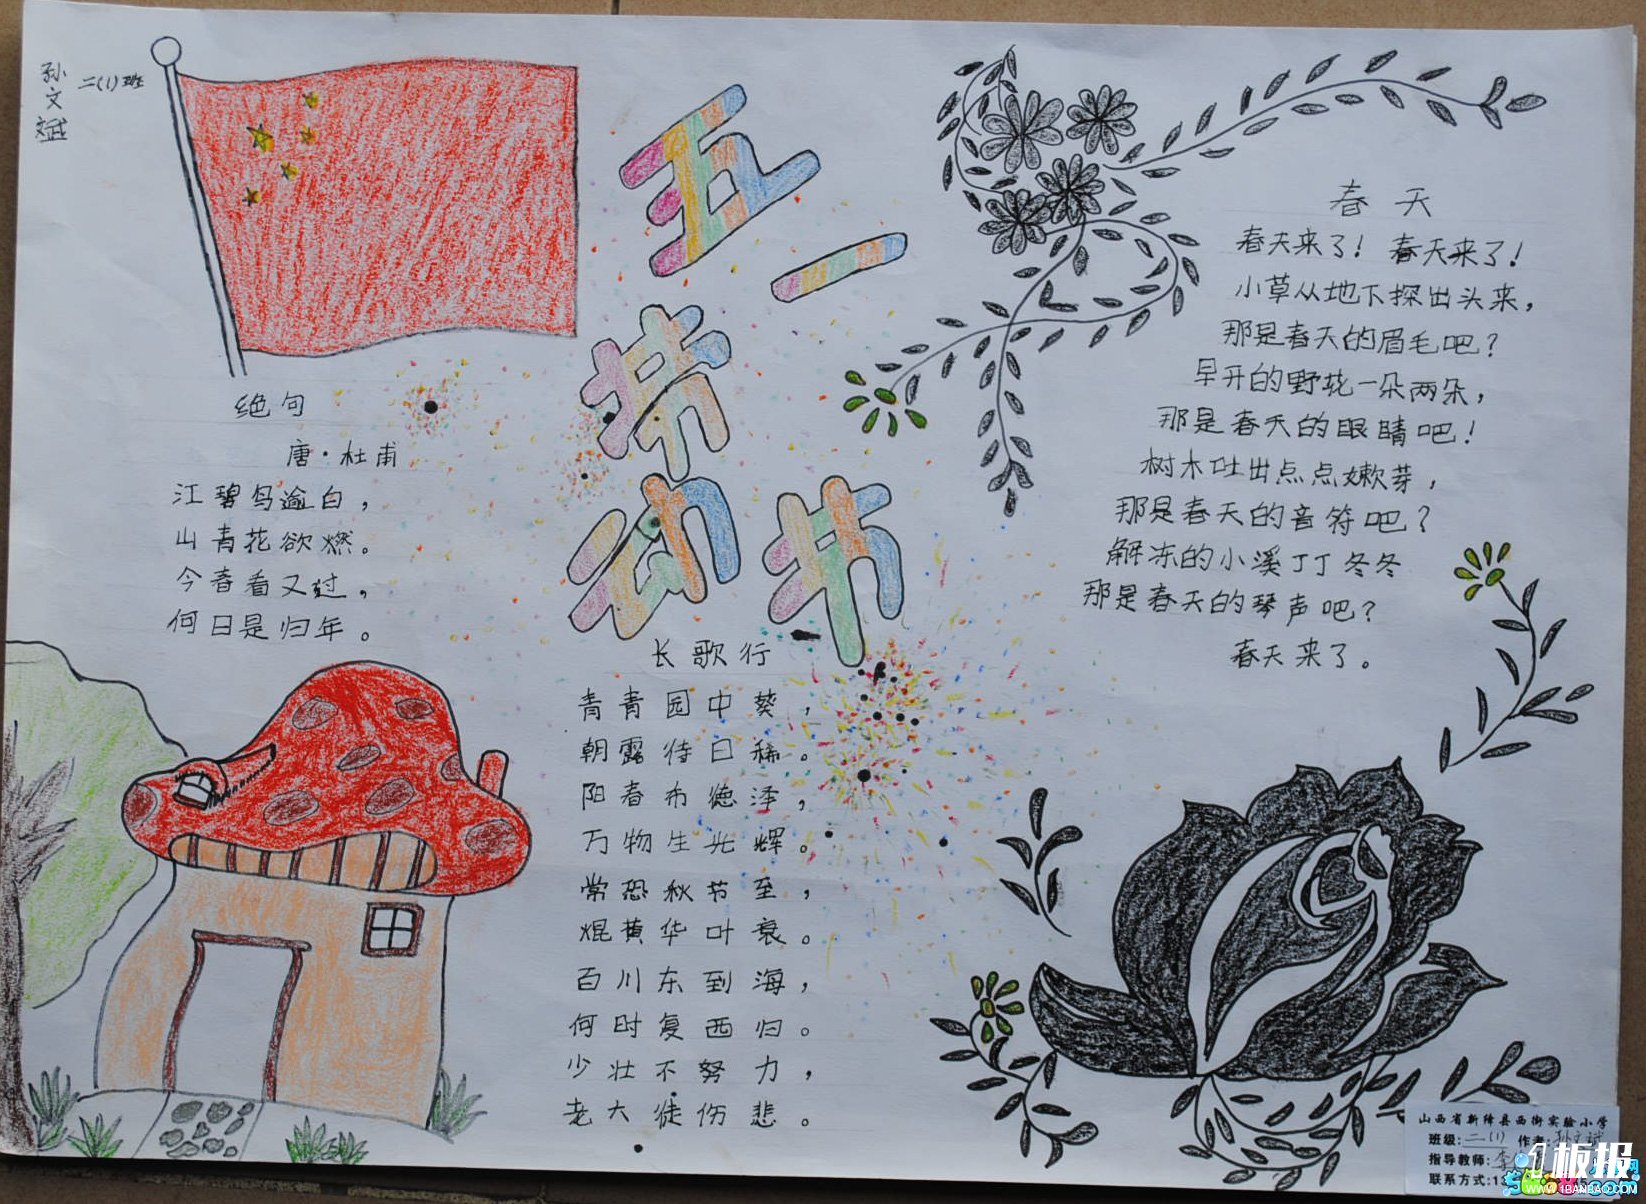 孙文斌
二(1)班
五一
劳
动节
绝句
唐·杜甫
江碧鸟逾白，
山青花欲燃。
今春看又过，
何日是归年。
长歌行
青青园中葵，
朝露待日稀。
阳春布德泽，
万物生光辉。
常恐秋节至，
焜黄华叶衰。
百川东到海，
何时复西归。
少壮不努力，
老大徒伤悲。
春天
春天来了！春天来了！
小草从地下探出头来，
那是春天的眉毛吧？
早开的野花一朵两朵，
那是春天的眼睛吧！
树木吐出点点嫩芽，
那是春天的音符吧？
解冻的小溪丁丁冬冬
那是春天的琴声吧？
春天来了。
山西省新绛县西街实验小学
班级：二(1) 作者：孙文斌
指导教师：李
联系方式：13
1板报
WWW.1BANBAO.COM